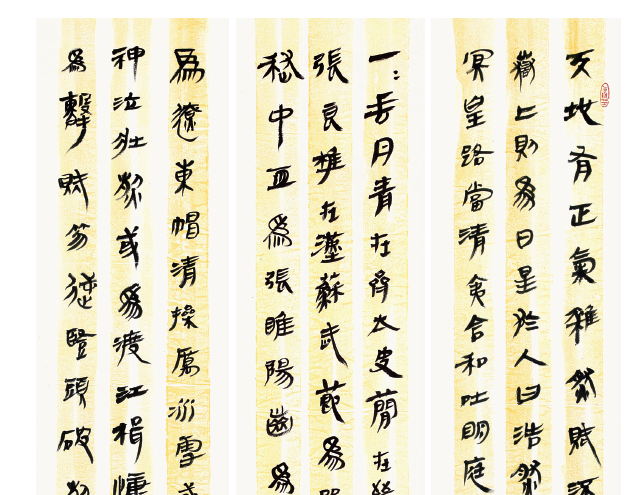 天地有正氣雜然賦流
嶽上則為日星於人曰浩然
冥皇路當清夷含和吐明庭
一:垂丹青在齊太史簡在晉
張良椎在漢蘇武節為嚴
嵇中血為張睢陽齒為
為遼東帽清操厲冰雪或
神泣壯烈或為渡江楫慷
為擊賊笏逆豎頭破裂